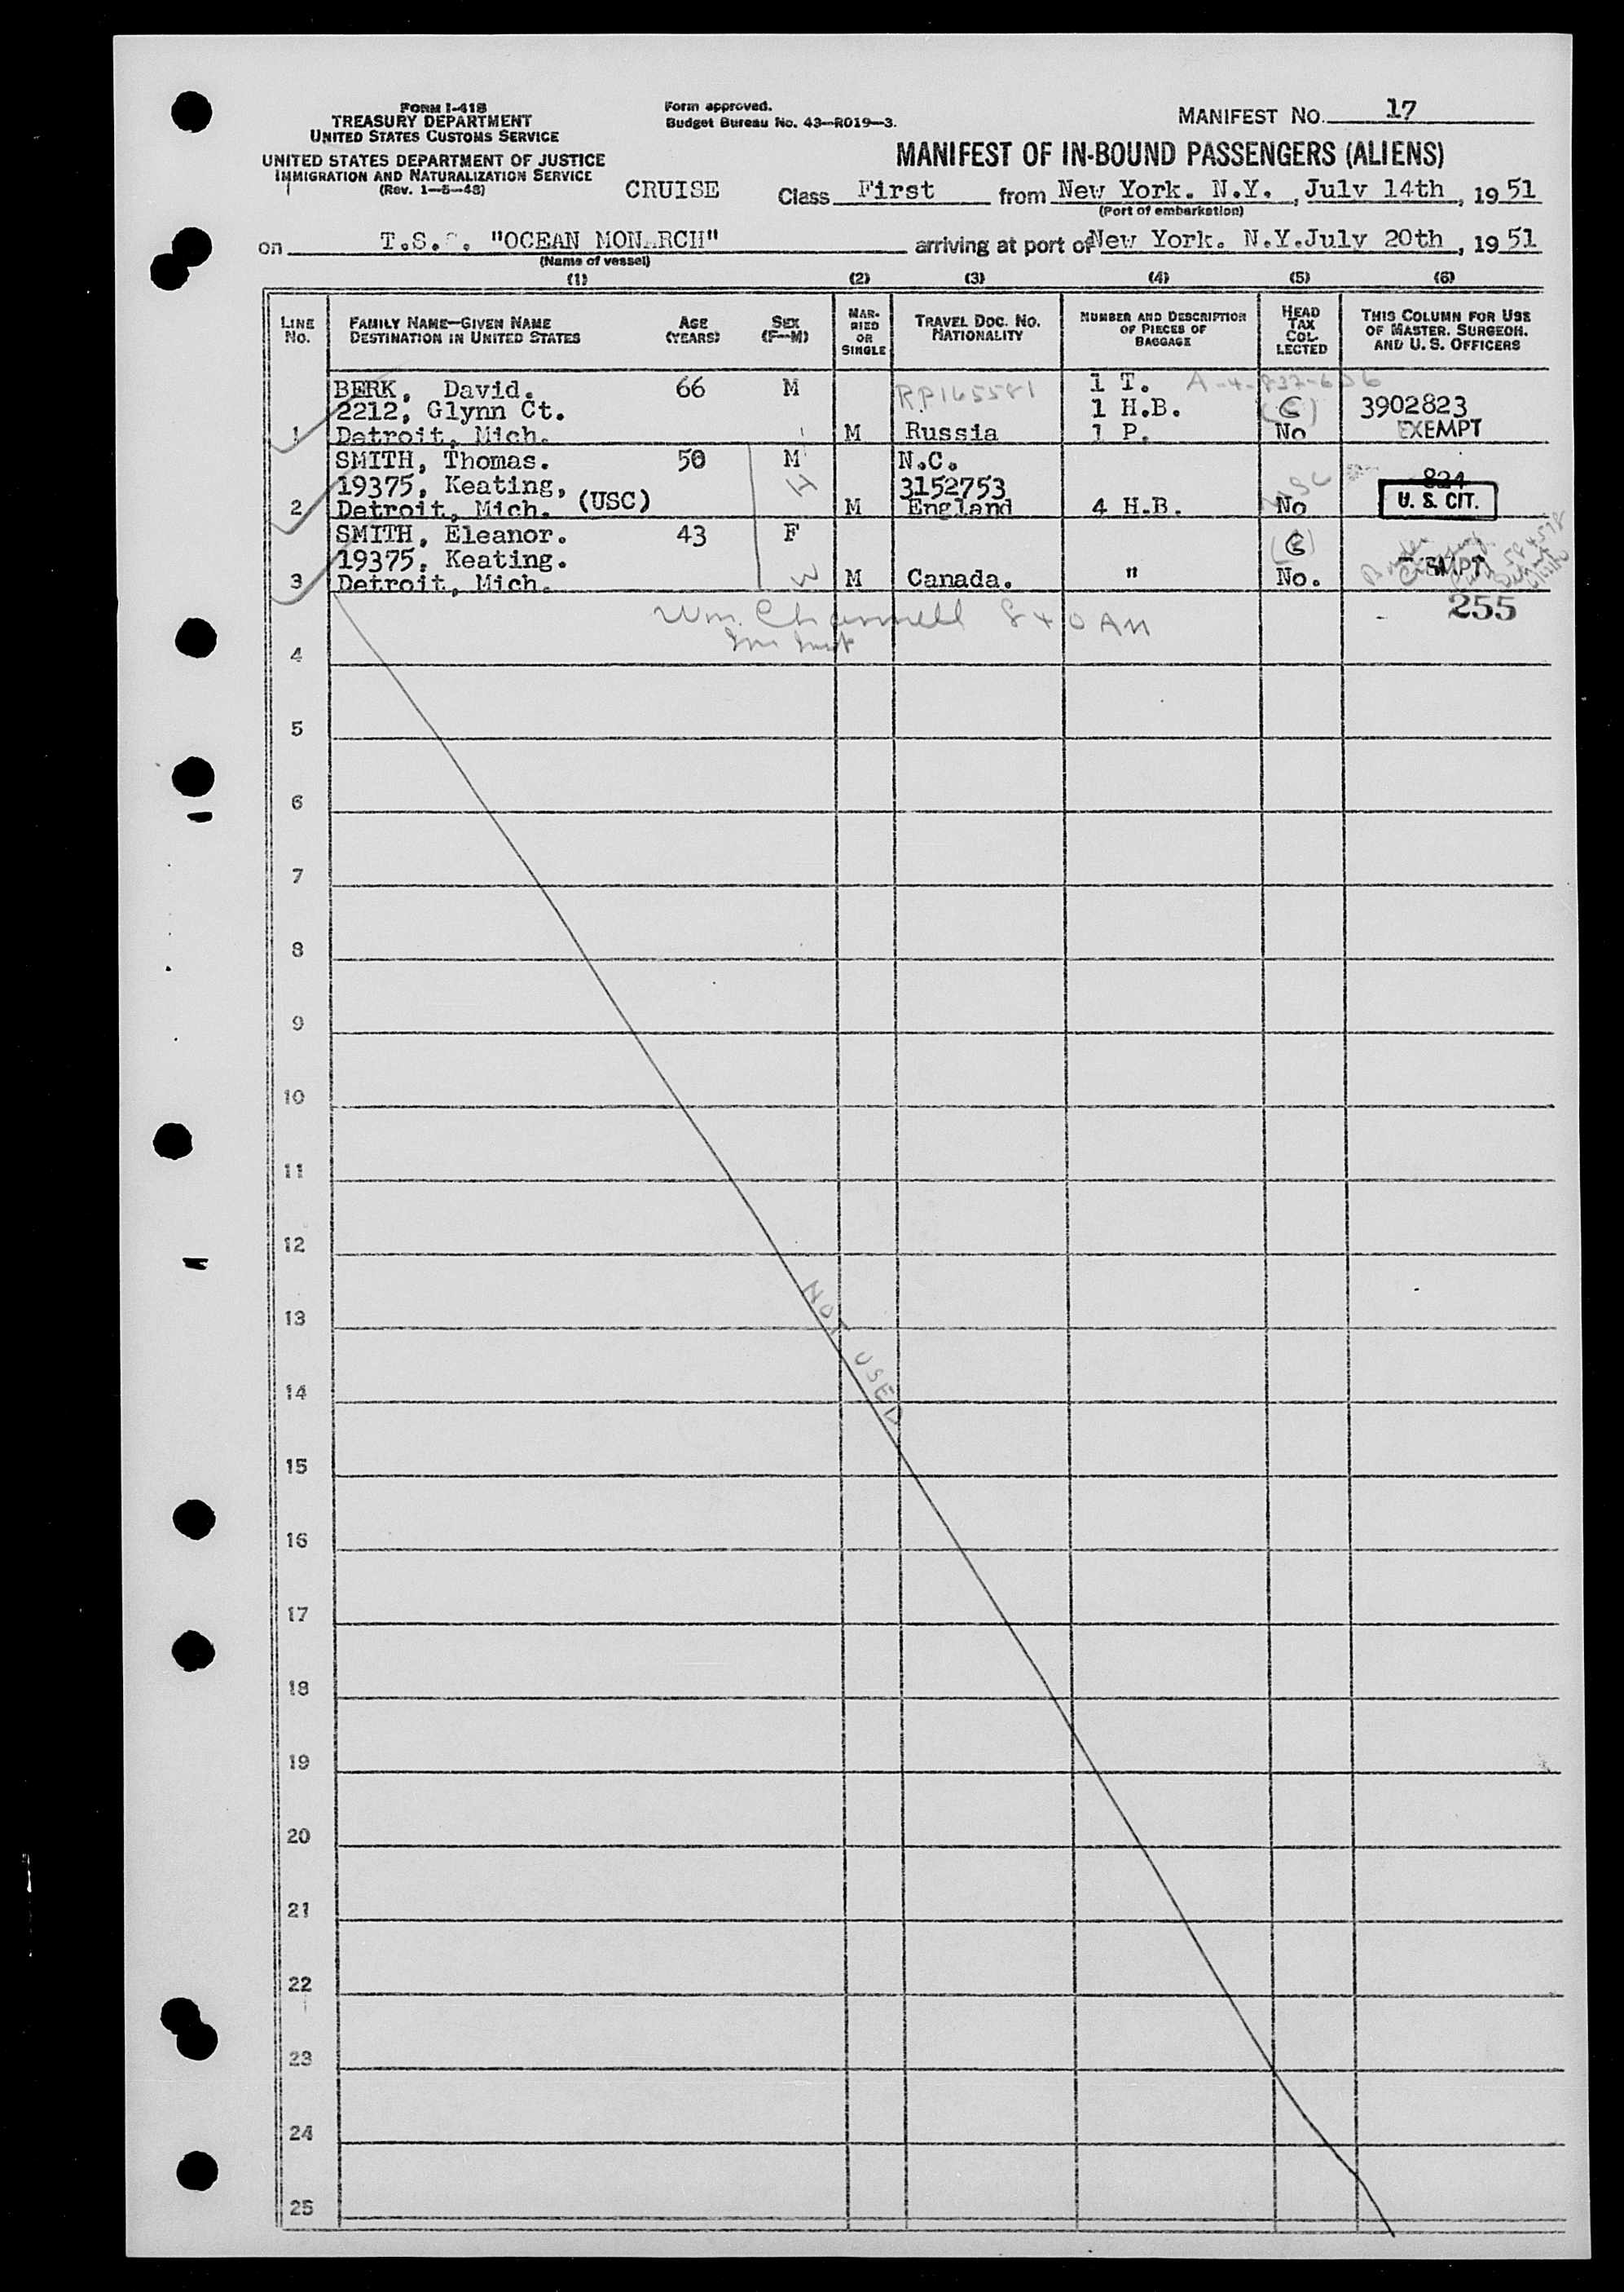 FORM I-418
TREASURY DEPARTMENT
UNITED STATES CUSTOMS SERVICE
UNITED STATES DEPARTMENT OF JUSTICE
IMMIGRATION AND NATURALIZATION SERVICE
(Rev. 1-5-48)
Form approved.
Budget Bureau No. 43-R019-3.
MANIFEST NO. 17
MANIFEST OF IN-BOUND PASSENGERS (ALIENS)
CRUISE Class First from New York. N.Y., July 14th, 1951
(Port of embarkation)
on T.S.S. "OCEAN MONARCH" arriving at port of New York. N.Y. July 20th, 1951
(Name of vessel)
(1) (2) (3) (4) (5) (6)
LINE No. FAMILY NAME—GIVEN NAME DESTINATION IN UNITED STATES AGE (YEARS) SEX (F—M) MARRIED OR SINGLE TRAVEL DOC. NO. NATIONALITY NUMBER AND DESCRIPTION OF PIECES OF BAGGAGE HEAD TAX COLLECTED THIS COLUMN FOR USE OF MASTER, SURGEON, AND U. S. OFFICERS
BERK, David. 66 M RP165581 1 T. A-4-837-656
2212, Glynn Ct. 1 H.B. C 3902823
1 Detroit, Mich. M Russia 1 P. No EXEMPT
SMITH, Thomas. 50 M N.C.
19375, Keating, H 3152753 USC 824
2 Detroit, Mich. (USC) M England 4 H.B. No U. S. CIT.
SMITH, Eleanor. 43 F C
19375, Keating. Border Crossing
3 Detroit, Mich. W M Canada. " No. EXEMPT
255
Wm. Channell 840 AM
4
5
6
7
8
9
10
11
12
13
NOT USED
14
15
16
17
18
19
20
21
22
23
24
25